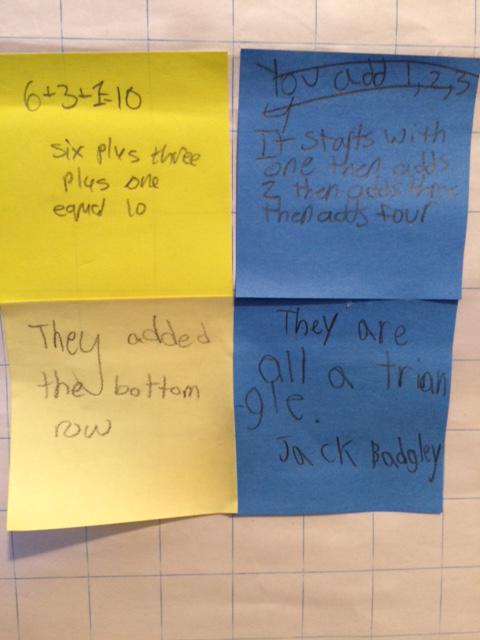 6+3+1=10
six plus three
plus one
equal 10
You add 1,2,3
It starts with
one then adds
2 then adds three
then adds four
They added
the bottom
row
They are
all a trian
gle.
Jack Badgley